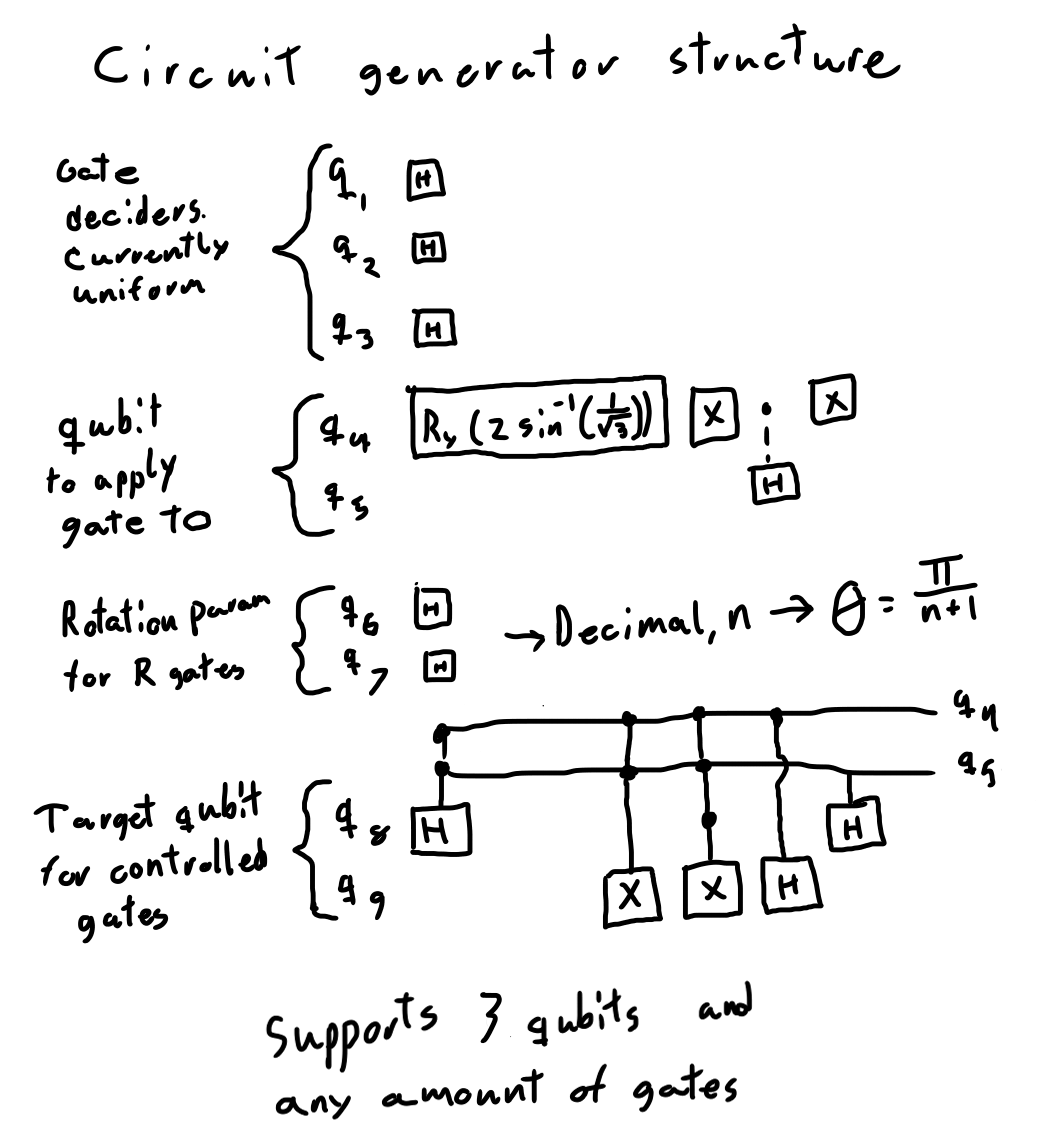 Circuit generator structure
Gate
deciders.
Currently
uniform
q1 H
q2 H
q3 H
qubit
to apply
gate to
q4 Ry (2 sin⁻¹(1/√3)) X X
q5 H
Rotation param
for R gates
q6 H
q7 H
→ Decimal, n → θ = π/n+1
q4
q5
Target qubit
for controlled
gates
q8 H H
q9 X X H
Supports 3 qubits and
any amount of gates